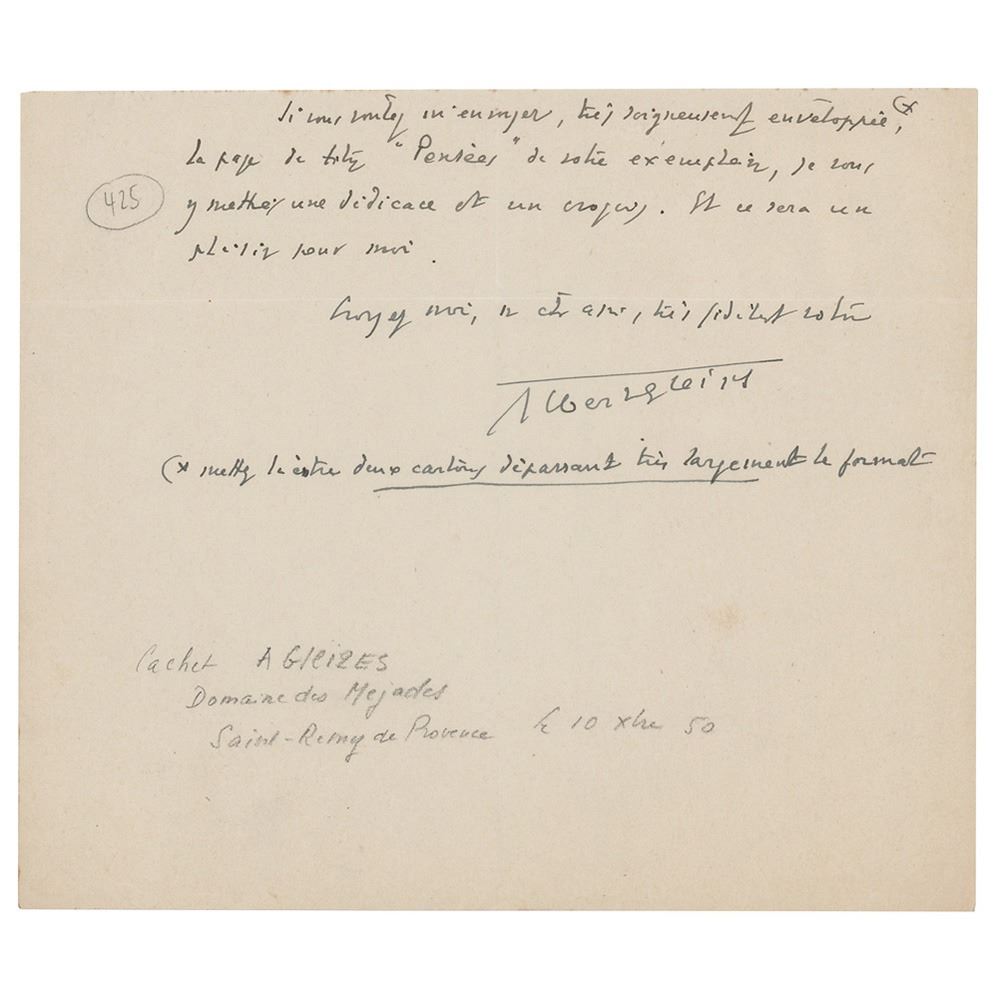 Si vous voulez m'envoyer, très soigneusement enveloppée, (x
la page de titre "Pensées" de votre exemplaire, je vous
y mettrai une dédicace et un croquis. Et ce sera un
plaisir pour moi.
425
Croyez moi, cher ami, très fidèlement votre
Albert Gleizes
(x mettez la entre deux cartons dépassant très largement le format
Cachet A GLEIZES
Domaine des Mejades
Saint-Remy de Provence le 10 Xbre 50